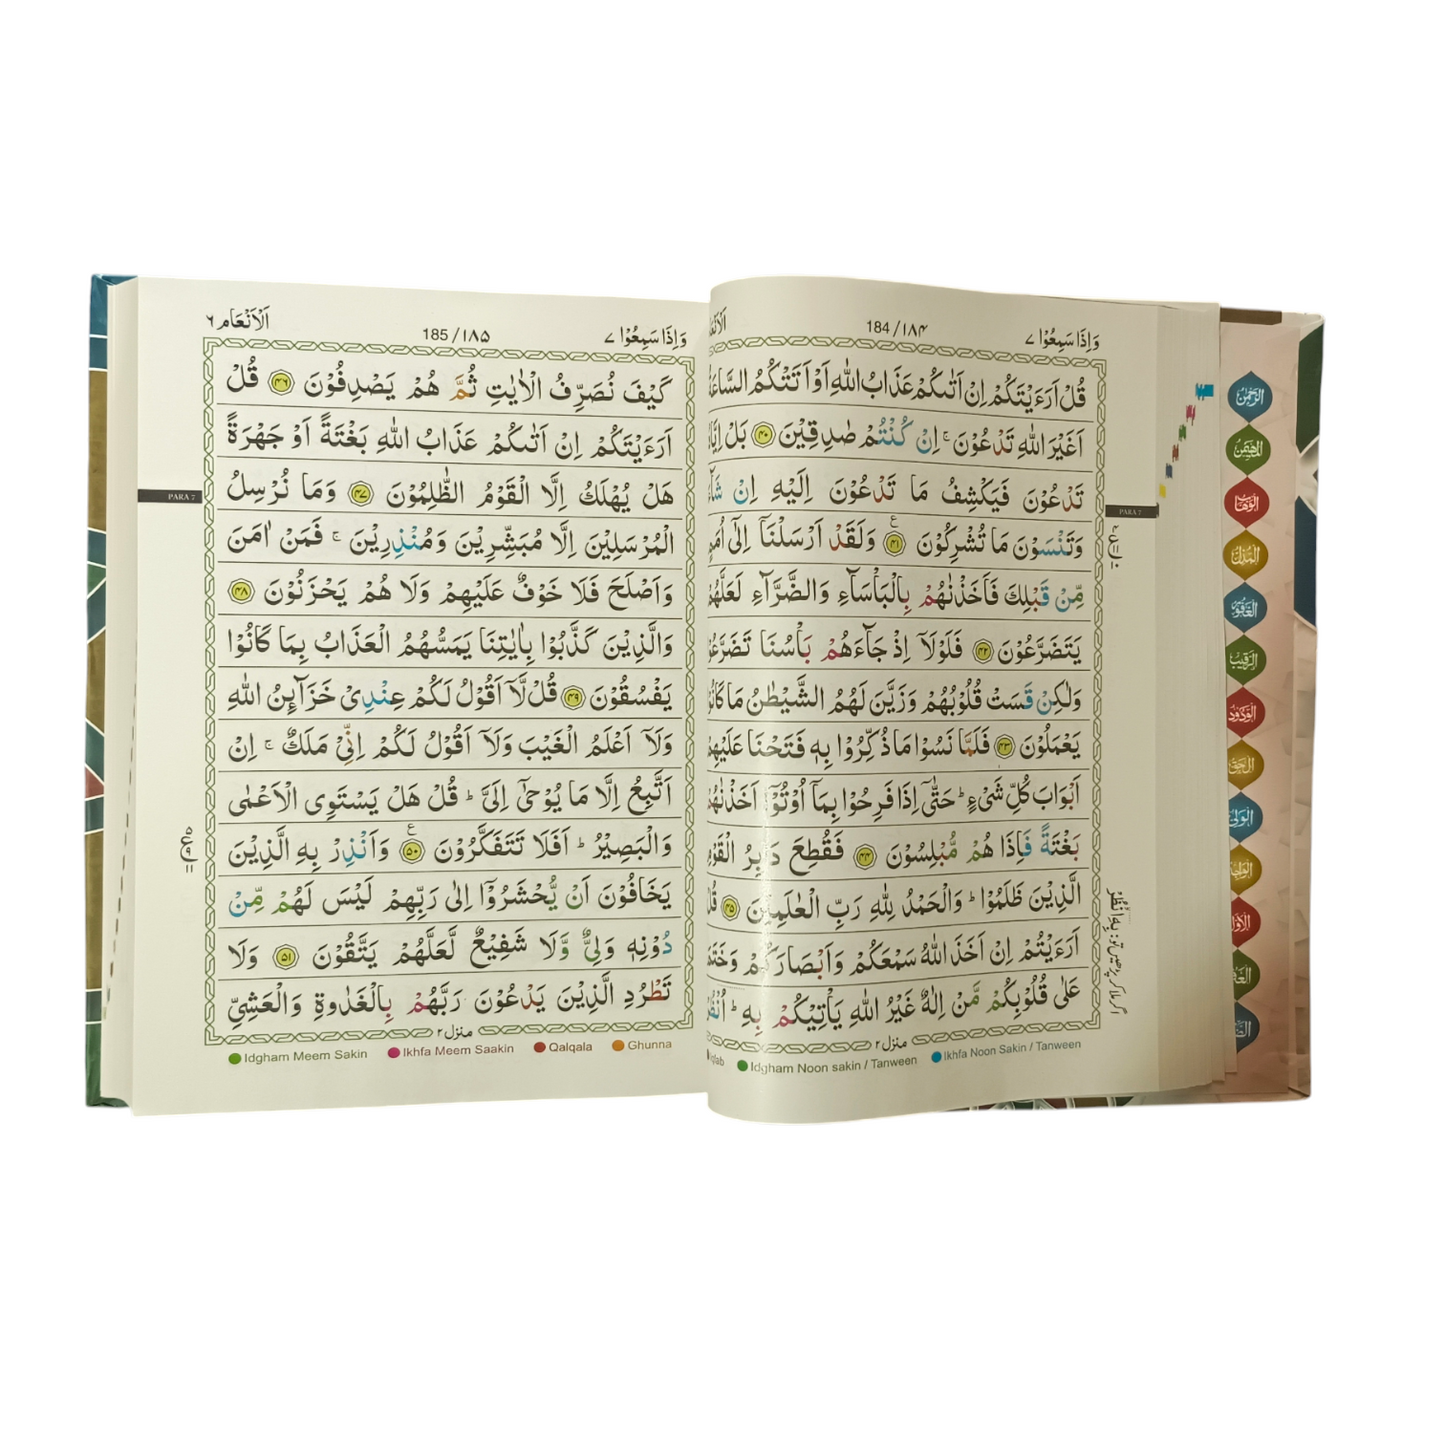 وَاِذَا سَمِعُوْا ٧
184 / ١٨۴
قُلْ اَرَءَيْتَكُمْ اِنْ اَتٰىكُمْ عَذَابُ اللّٰهِ اَوْ اَتَتْكُمُ السَّاعَةُ
اَغَيْرَ اللّٰهِ تَدْعُوْنَ ۚ اِنْ كُنْتُمْ صٰدِقِيْنَ ﴿۴۰﴾ بَلْ
تَدْعُوْنَ فَيَكْشِفُ مَا تَدْعُوْنَ اِلَيْهِ اِنْ
وَتَنْسَوْنَ مَا تُشْرِكُوْنَ ﴿۴۱﴾ وَلَقَدْ اَرْسَلْنَاۤ اِلٰۤى
مِّنْ قَبْلِكَ فَاَخَذْنٰهُمْ بِالْبَاْسَآءِ وَالضَّرَّآءِ لَعَلَّهُمْ
يَتَضَرَّعُوْنَ ﴿۴۲﴾ فَلَوْلَاۤ اِذْ جَآءَهُمْ بَاْسُنَا
وَلٰكِنْ قَسَتْ قُلُوْبُهُمْ وَزَيَّنَ لَهُمُ الشَّيْطٰنُ مَا
يَعْمَلُوْنَ ﴿۴۳﴾ فَلَمَّا نَسُوْا مَا ذُكِّرُوْا بِهٖ فَتَحْنَا عَلَيْهِمْ
اَبْوَابَ كُلِّ شَىْءٍ ؕ حَتّٰۤى اِذَا فَرِحُوْا بِمَاۤ اُوْتُوْۤا اَخَذْنٰهُمْ
بَغْتَةً فَاِذَا هُمْ مُّبْلِسُوْنَ ﴿۴۴﴾ فَقُطِعَ دَابِرُ الْقَوْمِ
الَّذِيْنَ ظَلَمُوْا ؕ وَالْحَمْدُ لِلّٰهِ رَبِّ الْعٰلَمِيْنَ ﴿۴۵﴾
اَرَءَيْتُمْ اِنْ اَخَذَ اللّٰهُ سَمْعَكُمْ وَاَبْصَارَكُمْ
عَلٰى قُلُوْبِكُمْ مَّنْ اِلٰهٌ غَيْرُ اللّٰهِ يَاْتِيْكُمْ بِهٖ ؕ
منزل ٢
Idgham Noon sakin / Tanween
Ikhfa Noon Sakin / Tanween
PARA 7
وَاِذَا سَمِعُوْا ٧
185 / ١٨۵
اَلْاَنْعَام ٦
كَيْفَ نُصَرِّفُ الْاٰيٰتِ ثُمَّ هُمْ يَصْدِفُوْنَ ﴿۴۶﴾ قُلْ
اَرَءَيْتَكُمْ اِنْ اَتٰىكُمْ عَذَابُ اللّٰهِ بَغْتَةً اَوْ جَهْرَةً
هَلْ يُهْلَكُ اِلَّا الْقَوْمُ الظّٰلِمُوْنَ ﴿۴۷﴾ وَمَا نُرْسِلُ
الْمُرْسَلِيْنَ اِلَّا مُبَشِّرِيْنَ وَمُنْذِرِيْنَ ۚ فَمَنْ اٰمَنَ
وَاَصْلَحَ فَلَا خَوْفٌ عَلَيْهِمْ وَلَا هُمْ يَحْزَنُوْنَ ﴿۴۸﴾
وَالَّذِيْنَ كَذَّبُوْا بِاٰيٰتِنَا يَمَسُّهُمُ الْعَذَابُ بِمَا كَانُوْا
يَفْسُقُوْنَ ﴿۴۹﴾ قُلْ لَّاۤ اَقُوْلُ لَكُمْ عِنْدِىْ خَزَآئِنُ اللّٰهِ
وَلَاۤ اَعْلَمُ الْغَيْبَ وَلَاۤ اَقُوْلُ لَكُمْ اِنِّىْ مَلَكٌ ۚ اِنْ
اَتَّبِعُ اِلَّا مَا يُوْحٰۤى اِلَىَّ ؕ قُلْ هَلْ يَسْتَوِى الْاَعْمٰى
وَالْبَصِيْرُ ؕ اَفَلَا تَتَفَكَّرُوْنَ ﴿۵۰﴾ وَاَنْذِرْ بِهِ الَّذِيْنَ
يَخَافُوْنَ اَنْ يُّحْشَرُوْۤا اِلٰى رَبِّهِمْ لَيْسَ لَهُمْ مِّنْ
دُوْنِهٖ وَلِىٌّ وَّلَا شَفِيْعٌ لَّعَلَّهُمْ يَتَّقُوْنَ ﴿۵۱﴾ وَلَا
تَطْرُدِ الَّذِيْنَ يَدْعُوْنَ رَبَّهُمْ بِالْغَدٰوةِ وَالْعَشِىِّ
منزل ٢
Idgham Meem Sakin
Ikhfa Meem Saakin
Qalqala
Ghunna
PARA 7